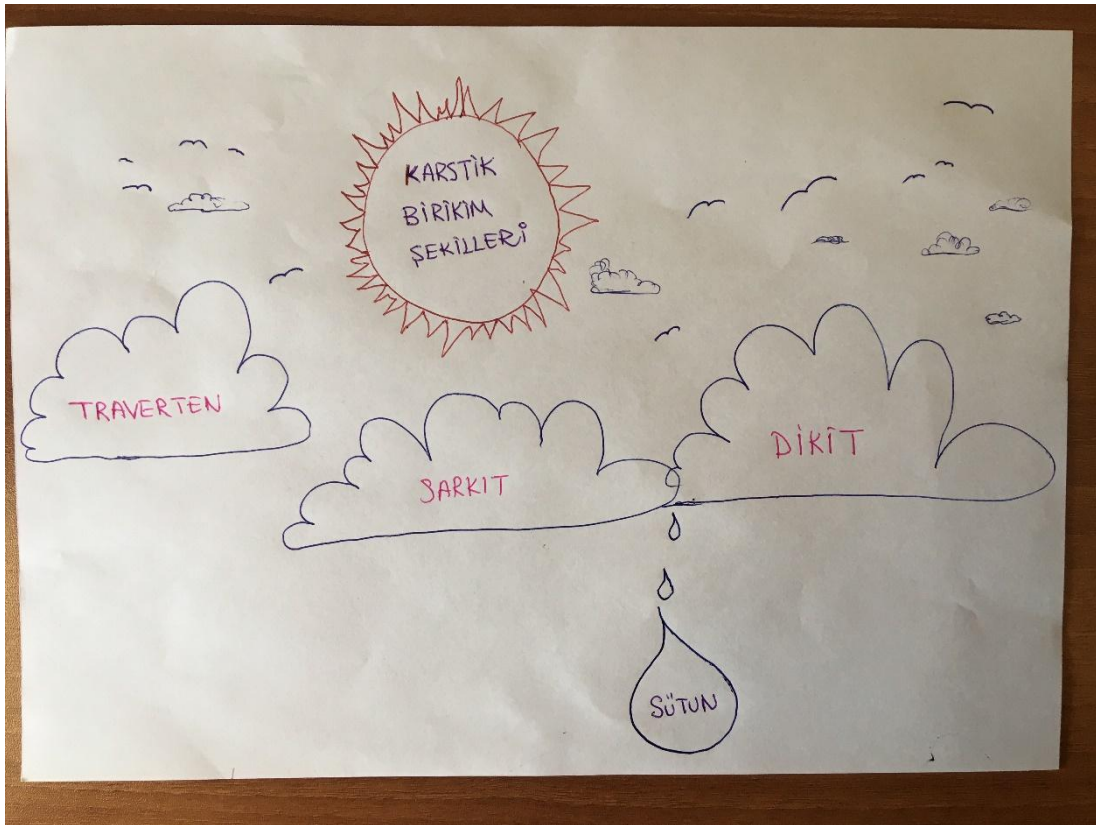 KARSTİK
BİRİKİM
ŞEKİLLERİ
TRAVERTEN
SARKIT
DİKİT
SÜTUN